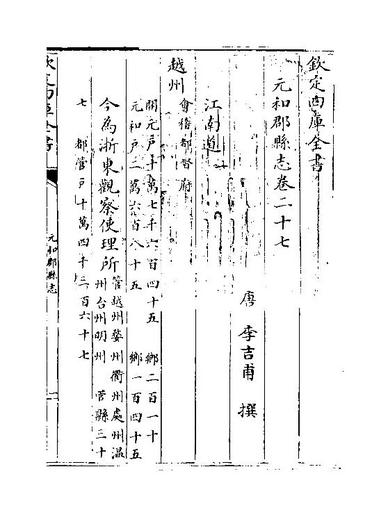 欽定四庫全書
元和郡縣志卷二十七
唐 李吉甫 撰
江南道
越州 會稽 都督府
開元戶十萬七千六百四十五 鄉二百一十
元和戶二萬六百八十五 鄉一百四十五
今為浙東觀察使理所 管越州婺州衢州處州溫
州台州明州 管縣三十
七 都管戶十萬四千三百六十七
欽定四庫全書
元和郡縣志
一